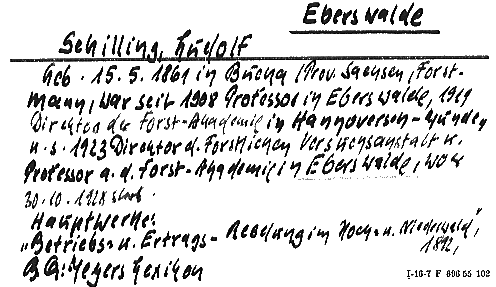 Eberswalde
Schilling, Rudolf
Geb. 15.5.1861 in Buena / Prov. Sachsen, Forst-
mann, war seit 1908 Professor in Eberswalde, 1919
Direktor der Forst-Akademie in Hannoversch-Münden
u. s. 1923 Direktor d. Forstlichen Versuchsanstalt u.
Professor a. d. Forst-Akademie in Eberswalde, wo er
30.10.1928 starb.
Hauptwerke:
„Betriebs- u. Ertrags-Regelung im Hoch- u. Niederwald",
1892,
BQ: Meyers Lexikon
I-16-7 F 696 55 102